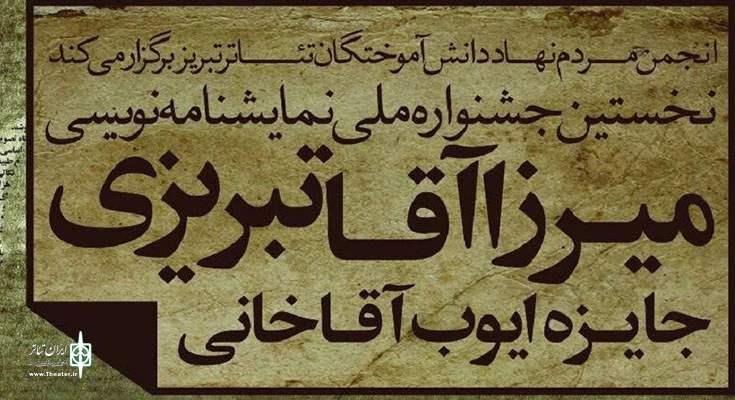 انجمن مردم نهاد دانش آموختگان تئاتر تبریز برگزار می کند
نخستین جشنواره ملی نمایشنامه نویسی
میرزا آقا تبریزی
جایزه ایوب آقاخانی
ایران تئاتر
www.Theater.ir